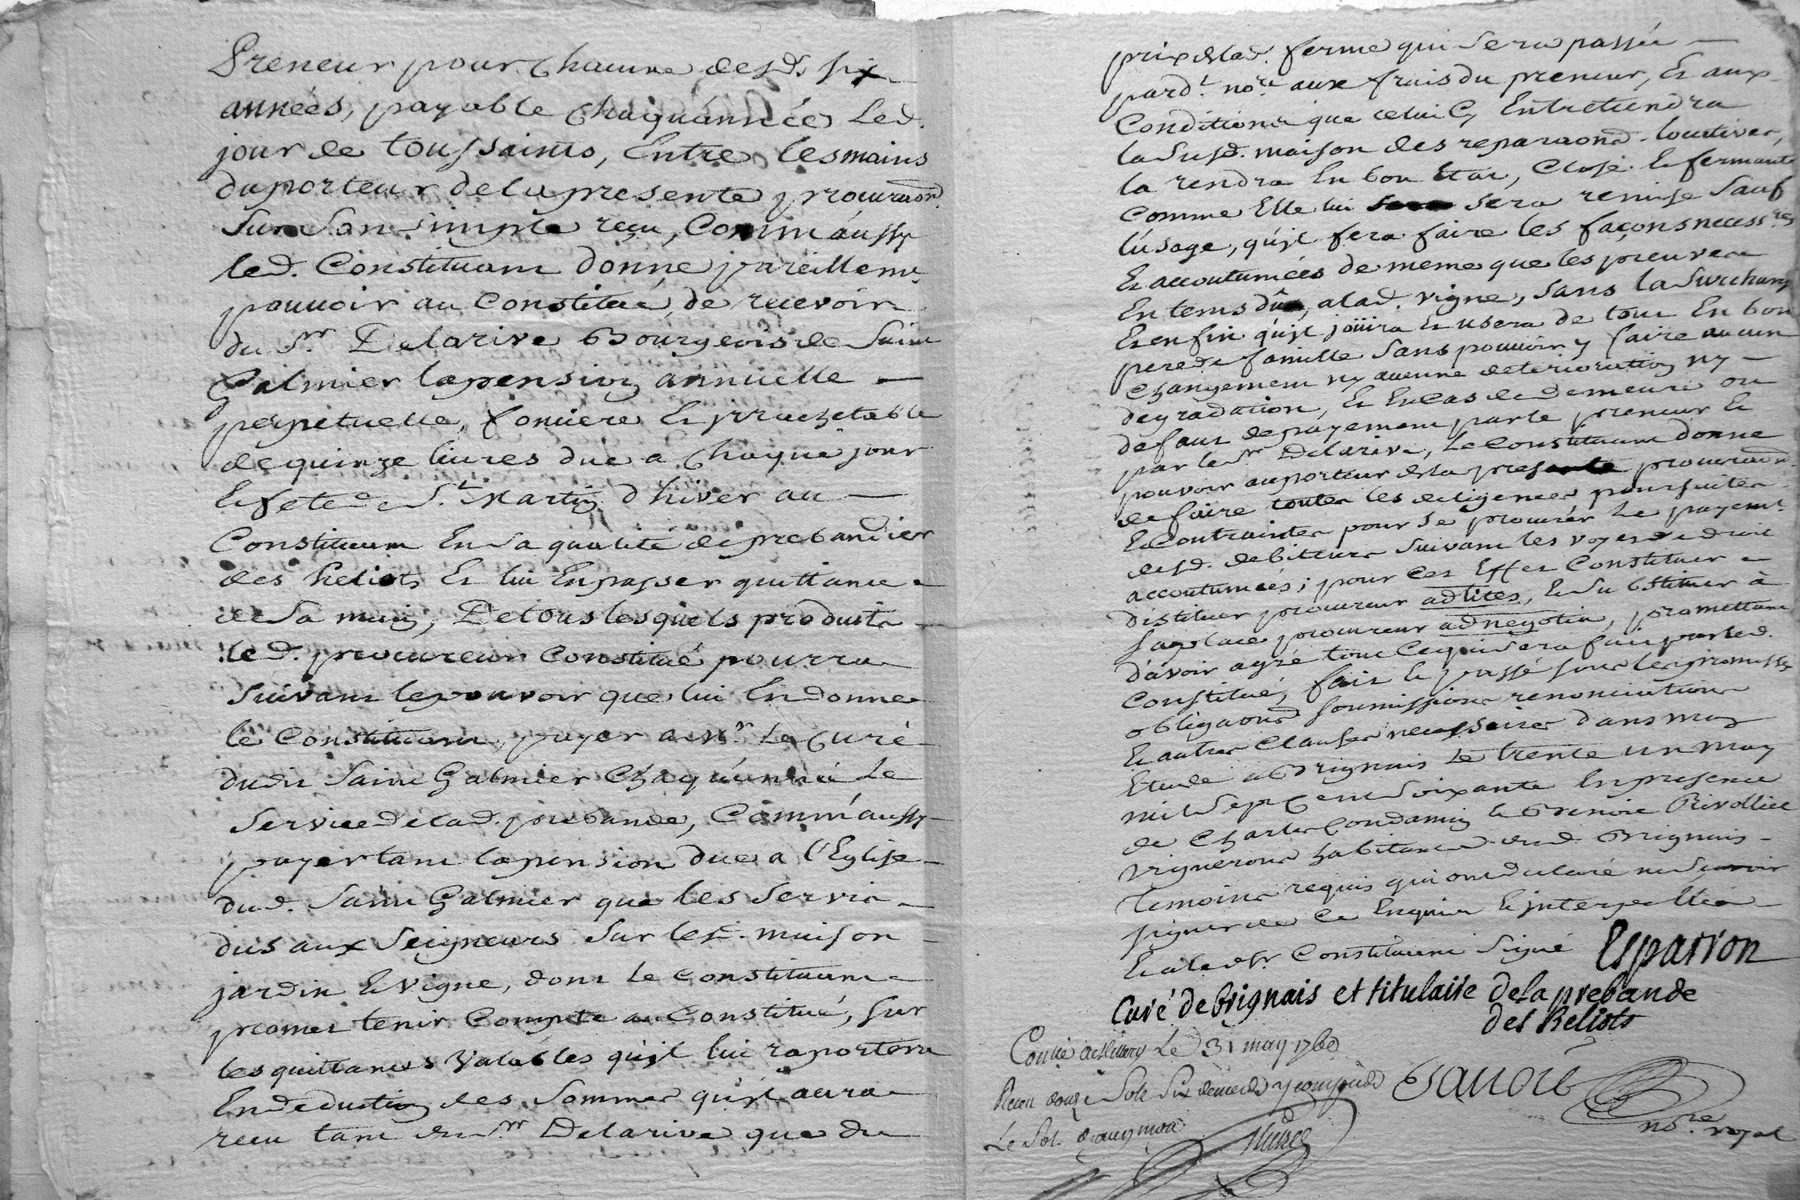 Preneur pour Chacune desd. six
années, payable Chaqu'année Led.
jour de toussaints, Entre les mains
du porteur de la presente procuraon.
Sur Son Simple reçu, Comm'áussy
led. Constituant donne pareillemt.
pouvoir au Constitué, de recevoir
du Sr. Delarive Bourgeois de Saint
Galmier la pension annuelle
perpetuelle, fonciere Et rrachetable
de quinze livres due a Chaque jour
Et fete de St. Martin d'hiver au
Constituant En Sa qualité de prebandier
des Heliots Et lui En passer quittance
de Sa main, De tous lesquels produits
led. procureur Constitué pourra
Suivant le pouvoir que lui En donne
le Constituant, payer a Mr. Le Curé
dudit Saint Galmier Chaqu'année Le
Service de lad. prebande, Comm'aussy
payer tant la pension due a l'Eglise
dud. Saint Galmier que les Servis
dus aux Seigneurs Sur les maison
jardin Et vigne, dont Le Constituant
promet tenir Compte au Constitué, Sur
les quittances valables qu'jl lui raportera
En deduction des Sommes qu'jl aura
recu tant du Sr. Delarive que du
prix de lad. ferme qui Sera passée
pardt. nore. aux frais du preneur, Et aux
Conditions que celui Cy Entretiendra
la Susd. maison des reparaons locatives,
la rendra En bon Etat, Close Et fermante
Comme Elle lui sera remise Sauf
l'usage, qu'jl fera faire les façons necessres.
Et accoutumées de meme que les preuves
En tems dû, a lad. vigne, Sans la Surcharger
Et enfin qu'jl joüira Et usera de tout En bon
pere de famille Sans pouvoir y faire aucun
Changement ny aucune deterioration ny
degradation, Et En cas de demeure ou
defaut de payement par le preneur Et
par le Sr. Delarive, Le Constituant donne
pouvoir au porteur de la presente procuraon.
de faire toutes les diligences poursuites
Et Contraintes pour Se procurer Le payemt.
desd. debiteurs Suivant les voyes de droit
accoutumées; pour Cet Effet Constituer
Distituer procureur ad lites, Et Substituer à
Sa place procureur ad negotia, promettant
d'avoir agréé tout Ce qui Sera fait par led.
Constitué, fait Et passé Sous Les promesses
obligaons Soumissions renonciations
Et autres Clauses necessaires dans mon
Etude a Brignais Le trente un may
mil Sept Cent Soixante En presence
de Charles Condamin Et Benoit Rivollier
vignerons habitants dud. Brignais
Temoins requis qui ont declaré ne Savoir
signer de Ce Enquis Et jnterpellés
Et a led. Sr. Constituant Signé Esparron
Curé de Brignais et titulaire de la prebande
des Heliots
Conllé a Millery Le 31 may 1760
Recu douze Sols Six deniers y compris
Le Sol
nore. royal